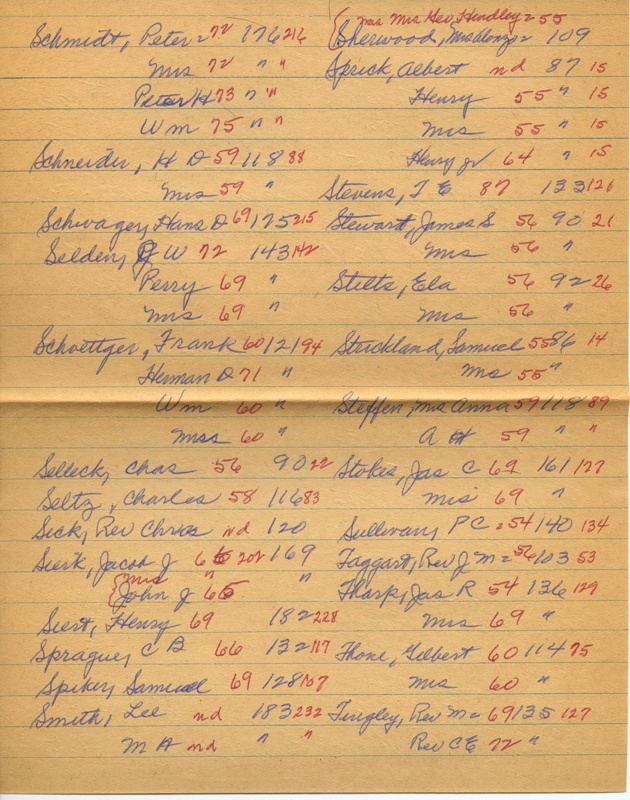 Schmidt, Peter = 72 176 216
Mrs 72 " "
Peter H 73 " "
Wm 75 " "
Schneider, H D 59 118 88
Mrs 59 "
Schwager, Hans D 69 175 215
Selden, G W 72 143 142
Perry 69 "
Mrs 69 "
Schoettger, Frank 60 121 94
Herman D 71 "
Wm 60 "
Mrs 60 "
Selleck, Chas 56 90 22
Seltz, Charles 58 116 83
Sick, Rev Chras nd 120
Sierk, Jacob J 66 202 169
Mrs " "
John J 65
Siert, Henry 69 182 228
Sprague, C B 66 132 117
Spiker, Samuel 69 128 107
Smith, Lee nd 183 232
M A nd " "
Mrs Mrs Geo Hindley = 55
Sherwood, Mrs Alonzo = 109
Sprick, Albert nd 87 15
Henry 55 " 15
Mrs 55 " 15
Henry jr 64 " 15
Stevens, T E 87 133 126
Stewart, James S 56 90 21
Mrs 56 "
Stilts, Ela 56 92 26
Mrs 56 "
Strickland, Samuel 55 86 14
Mrs 55 "
Steffen, Mrs Anna 59 118 89
A H 59 " "
Stokes, Jas C 69 161 127
Mrs 69 "
Sullivan, P C = 54 140 134
Taggart, Rev J M = 56 103 53
Tharp, Jas R 54 136 129
Mrs 69 "
Thone, Gilbert 60 114 75
Mrs 60 "
Tingley, Rev M = 69 135 127
Rev C E 72 "